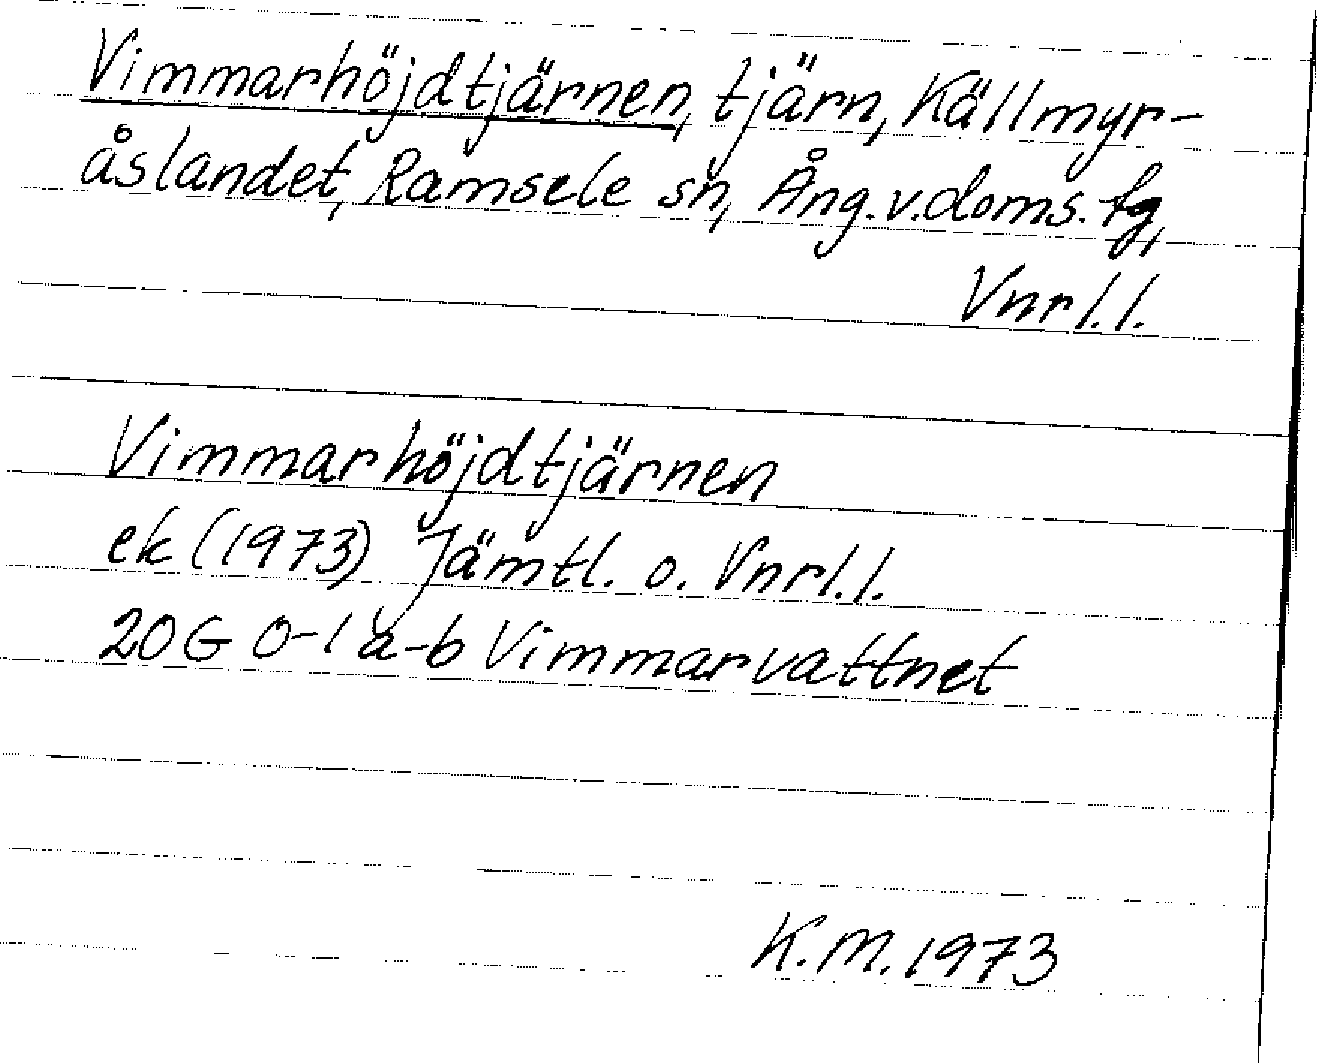 Vimmarhöjdtjärnen, tjärn, Källmyr-
åslandet, Ramsele sn, Ång.v.doms.tg,
Vnrl.l.
Vimmarhöjdtjärnen
ek (1973) Jämtl. o. Vnrl.l.
20G 0-1 a-b Vimmarvattnet
K.M. 1973